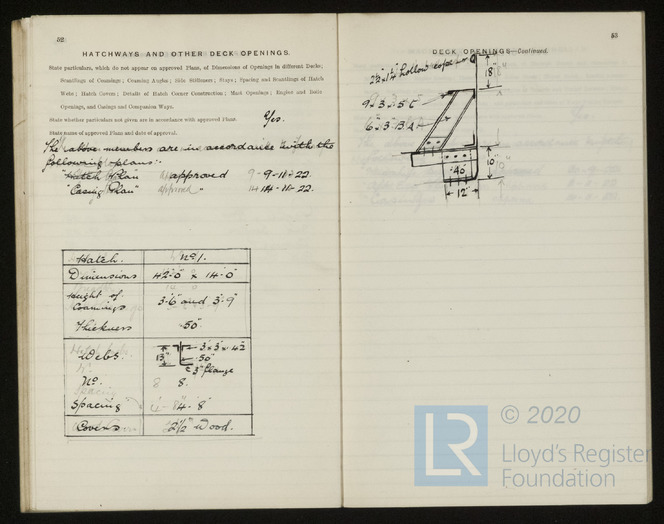 52
HATCHWAYS AND OTHER DECK OPENINGS.
State particulars, which do not appear on approved Plans, of Dimensions of Openings in different Decks;
Scantlings of Coamings; Coaming Angles; Side Stiffeners; Stays; Spacing and Scantlings of Hatch
Webs; Hatch Covers; Details of Hatch Corner Construction; Mast Openings; Engine and Boiler
Openings, and Casings and Companion Ways.
State whether particulars not given are in accordance with approved Plans. Yes.
State name of approved Plans and date of approval.
The above members are in accordance with the
following plans:-
"Hatch Plan" approved 9-11-22.
"Casing Plan" " 14-11-22.
Hatch. No 1.
Dimensions 42'-0" x 14'-0"
Height of Coamings 3'-6" and 3'-9"
Thickness .50"
Webs. 13" 3" x 3" x
.50"
3" flange
No. 8.
Spacing 4'-8"
Covers 2½" Wood.
53
DECK OPENINGS—Continued.
2½" x 1¼" hollow cope
18"
9 x 3
6" x 3" B.A.
.40
10"
12"
© 2020
LR
Lloyd's Register
Foundation